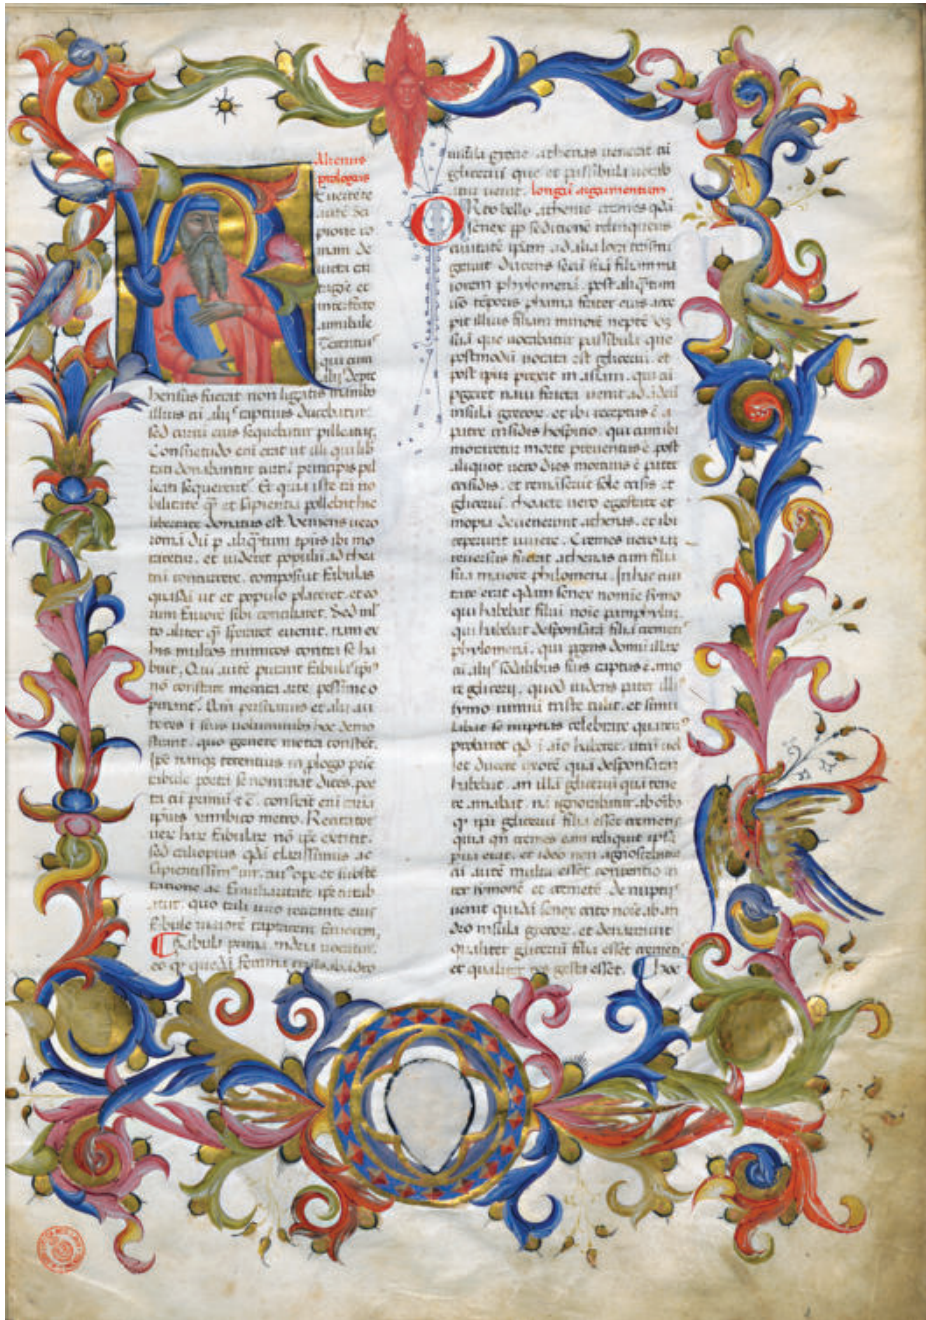 Alienus
prologus
Euertere
aute sci
pione co
nam de
uicta car
tagie et
interfecto
anuibale
Terentius
qui cum
alijs depre
hensus fuerat non ligatis manibꝰ
illius cu alijs captius ducebatur
sed currū eius sequebatur pilleatus.
Consuetudo eni erat ut illi qui lib
tati donabantur currū principis pil
leati sequerent. Et quia iste tā no
bilitate qȝ et sapientia pollebat hic
libertate donatus est. Veniens uero
romā
moraretur et uideret populū ad thea
trū concurrere. composuit fabulas
quasdā ut et populo placeret. et eo
rum fauorē sibi conciliaret. Sed ml
to aliter qȝ speraret euenit. nam ex
his multos inimicos contra se ha
buit. Qui autē putant fabulas ipsius
nō constare metrica arte. pessime o
pinant.
teres i suis voluminibus hoc demo
strant. quo genere metri constet.
sepe nanqȝ terentius in plogo
fabule poeta se nominat dices. poe
ta cū primū
ipius iambico metro. Recitator
uer har fabular nō ipe extitit.
sed caliopius qdā clarissimus ac
sapientissimꝰ uir. cuiꝰ ope et subste
tatione ac familiaritate ipe
fabule maiorē captarent fauorem.
Fabula prima andria uocatur.
eo qȝ quedā femina crisis ab andro
insula grecie athenas uenerat cū
glicerii que et passibula uocab
atur uenit. longū argumentum
Orto bello athenis cremes qdā
senex pp seditionē relinquens
ciuitatē ipam ad alia loca trasmi
grauit ducens secū suā filiam ma
iorem phylomenā. post aliqȝtum
uero teporis phania frater eius arri
pit illius filiam minorē neptē uo
suā que uocabatur passibula que
postmodū uocata est gliceriū. et
post ipm prexit in asiam. qui cū
pgeret naui fracta uenit ad adrū
insulā grecor. et ibi receptus ē a
patre crisidis hospitio. qui cum ibi
moraretur morte preuentus ē post
aliquot uero dies mortuus ē pater
crisidis. et remaserūt sole crisis et
gliceriū. coacte uero egestate et
inopia deuenerunt athenas. et ibi
ceperunt uiuere. Cremes uero iā
reuersus fuerat athenas cum filia
sua maiore philomena. In hac ciui
tate erat qdam senex nomine symo
qui habebat filiū noie pamphylum
qui habebat desponsatā filiā cremetis
phylomenā. qui pgens domū illar
cū alijs sodalibus suis captus ē amo
re glicerii. quod uidens pater illiꝰ
symo nimiū triste tulit. et simu
labat se nuptias celebrare qua ten
probaret qd i aio haberet. utrū uel
let ducere uxorē quā desponsatam
habebat. an illā gliceriū quā tene
re amabat. nā ignorabatur ab oibꝰ
qȝ ipa gliceriū filia esset cremetis
quia qn cremes eam reliquit ipsa
pua erat. et ideo non agnoscebatur
cū autē multa esset contentio in
ter symonē et cremetē de nuptijs
uenit quidā senex crito noie ab an
dro insula grecor. et denuntiauit
qualiter gliceriū filia esset cremetis
et qualiter res gesta esset. Hoc